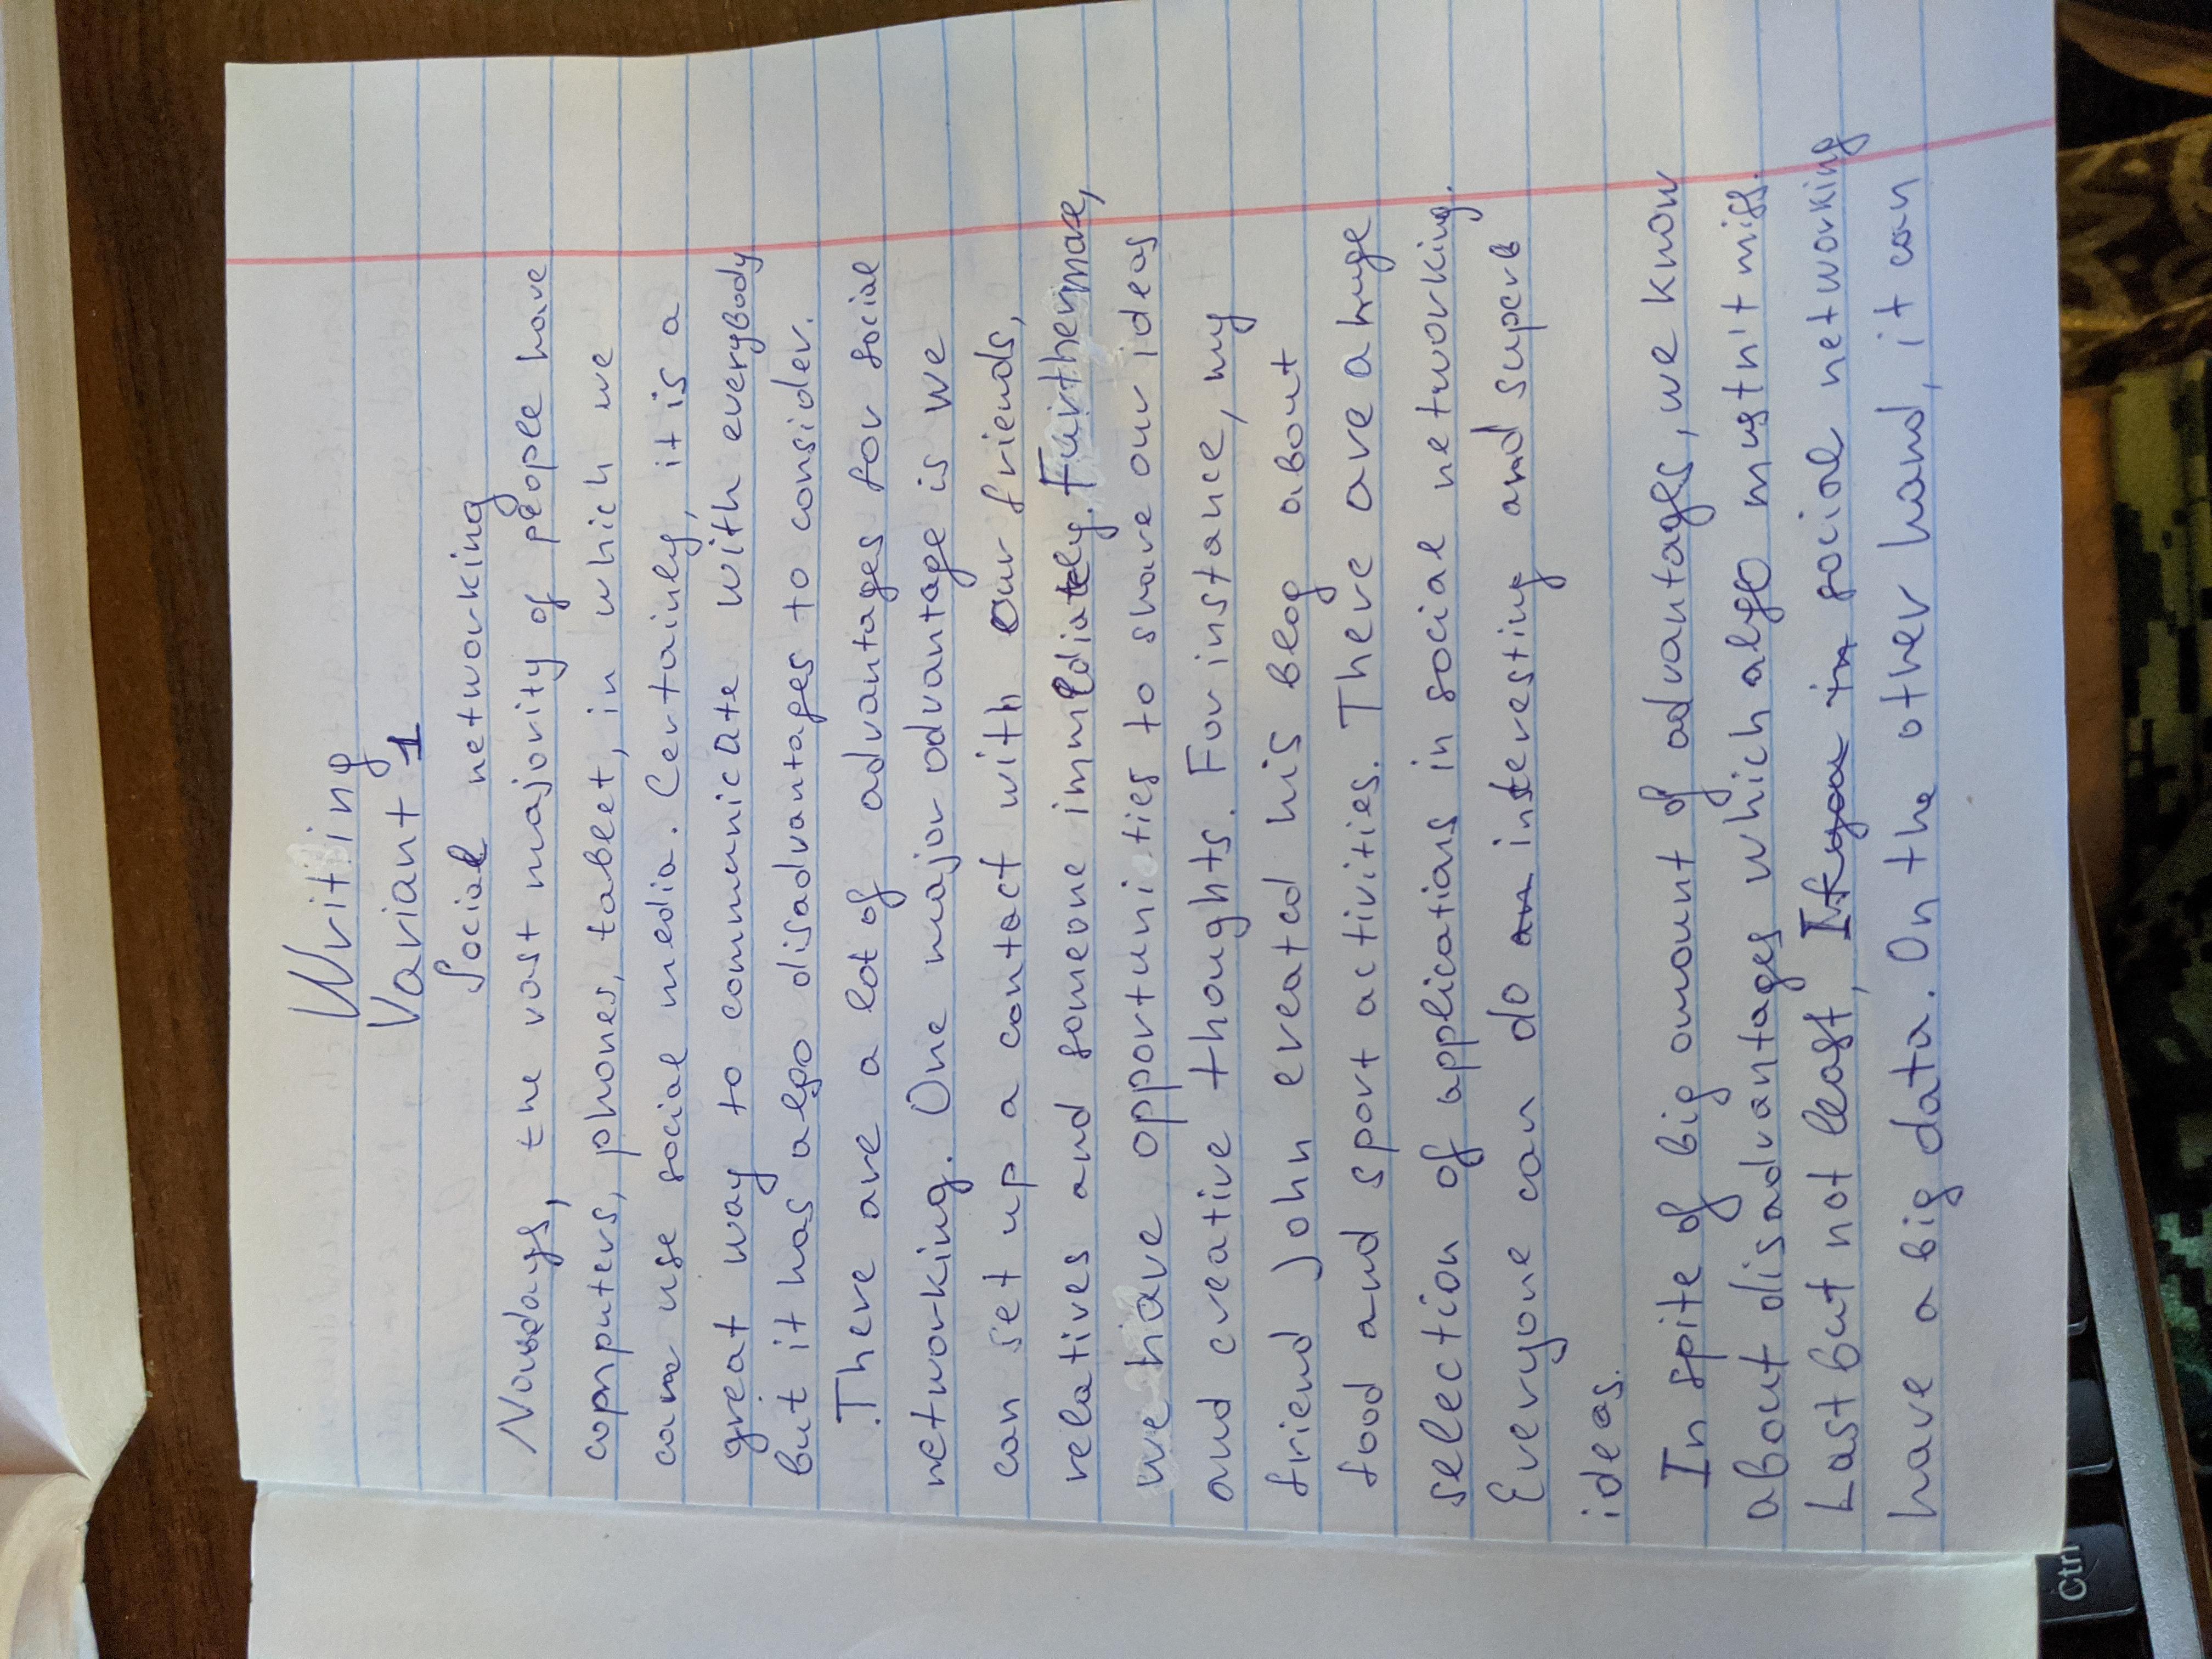 Writing
Variant 1
Social networking
Nowdays, the vast majority of people have
computers, phones, tablet, in which we
can use social media. Certainly, it is a
great way to communicate with everybody
but it has also disadvantages to consider.
There are a lot of advantages for social
networking. One major advantage is we
can set up a contact with our friends,
relatives and someone immediately. Furthermore,
we have opportunities to share our ideas
and creative thoughts. For instance, my
friend John created his blog about
food and sport activities. There are a huge
selection of applications in social networking.
Everyone can do an interesting and superb
ideas.
In spite of big amount of advantages, we know
about disadvantages which also mustn't miss.
Last but not least, If you in social networking
have a big data. On the other hand, it can
Ctrl